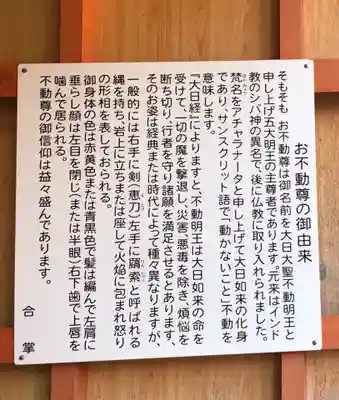 お不動尊の御由来
そもそも、お不動尊は御名前を大日大聖不動明王と
申し上げ五大明王の主尊者であります。元来はインド
教のシバ神の異名で、後に仏教に取り入れられました。
梵名をアチャラナータと申し上げて大日如来の化身
であり、サンスクリット語で「動かないこと」不動を
意味します。
『大日経』によりますと、不動明王は大日如来の命を
受けて、一切の魔を撃退し、災害、悪毒を除き、煩悩を
断ち切り、行者を守り諸願を満足させるとあります。
そのお姿は経典または時代によって種々異なりますが、
一般的には右手に剣(恵刀)左手に羂索と呼ばれる
縄を持ち、岩上に立ちまたは座して火焔に包まれ怒り
の形相を表しておられる。
御身体の色は赤黄色または青黒色で髪は編んで左肩に
垂らし顔は左目を閉じ(または半眼)右下歯で上唇を
噛んで居られる。
不動尊の御信仰は益々盛んであります。
合掌